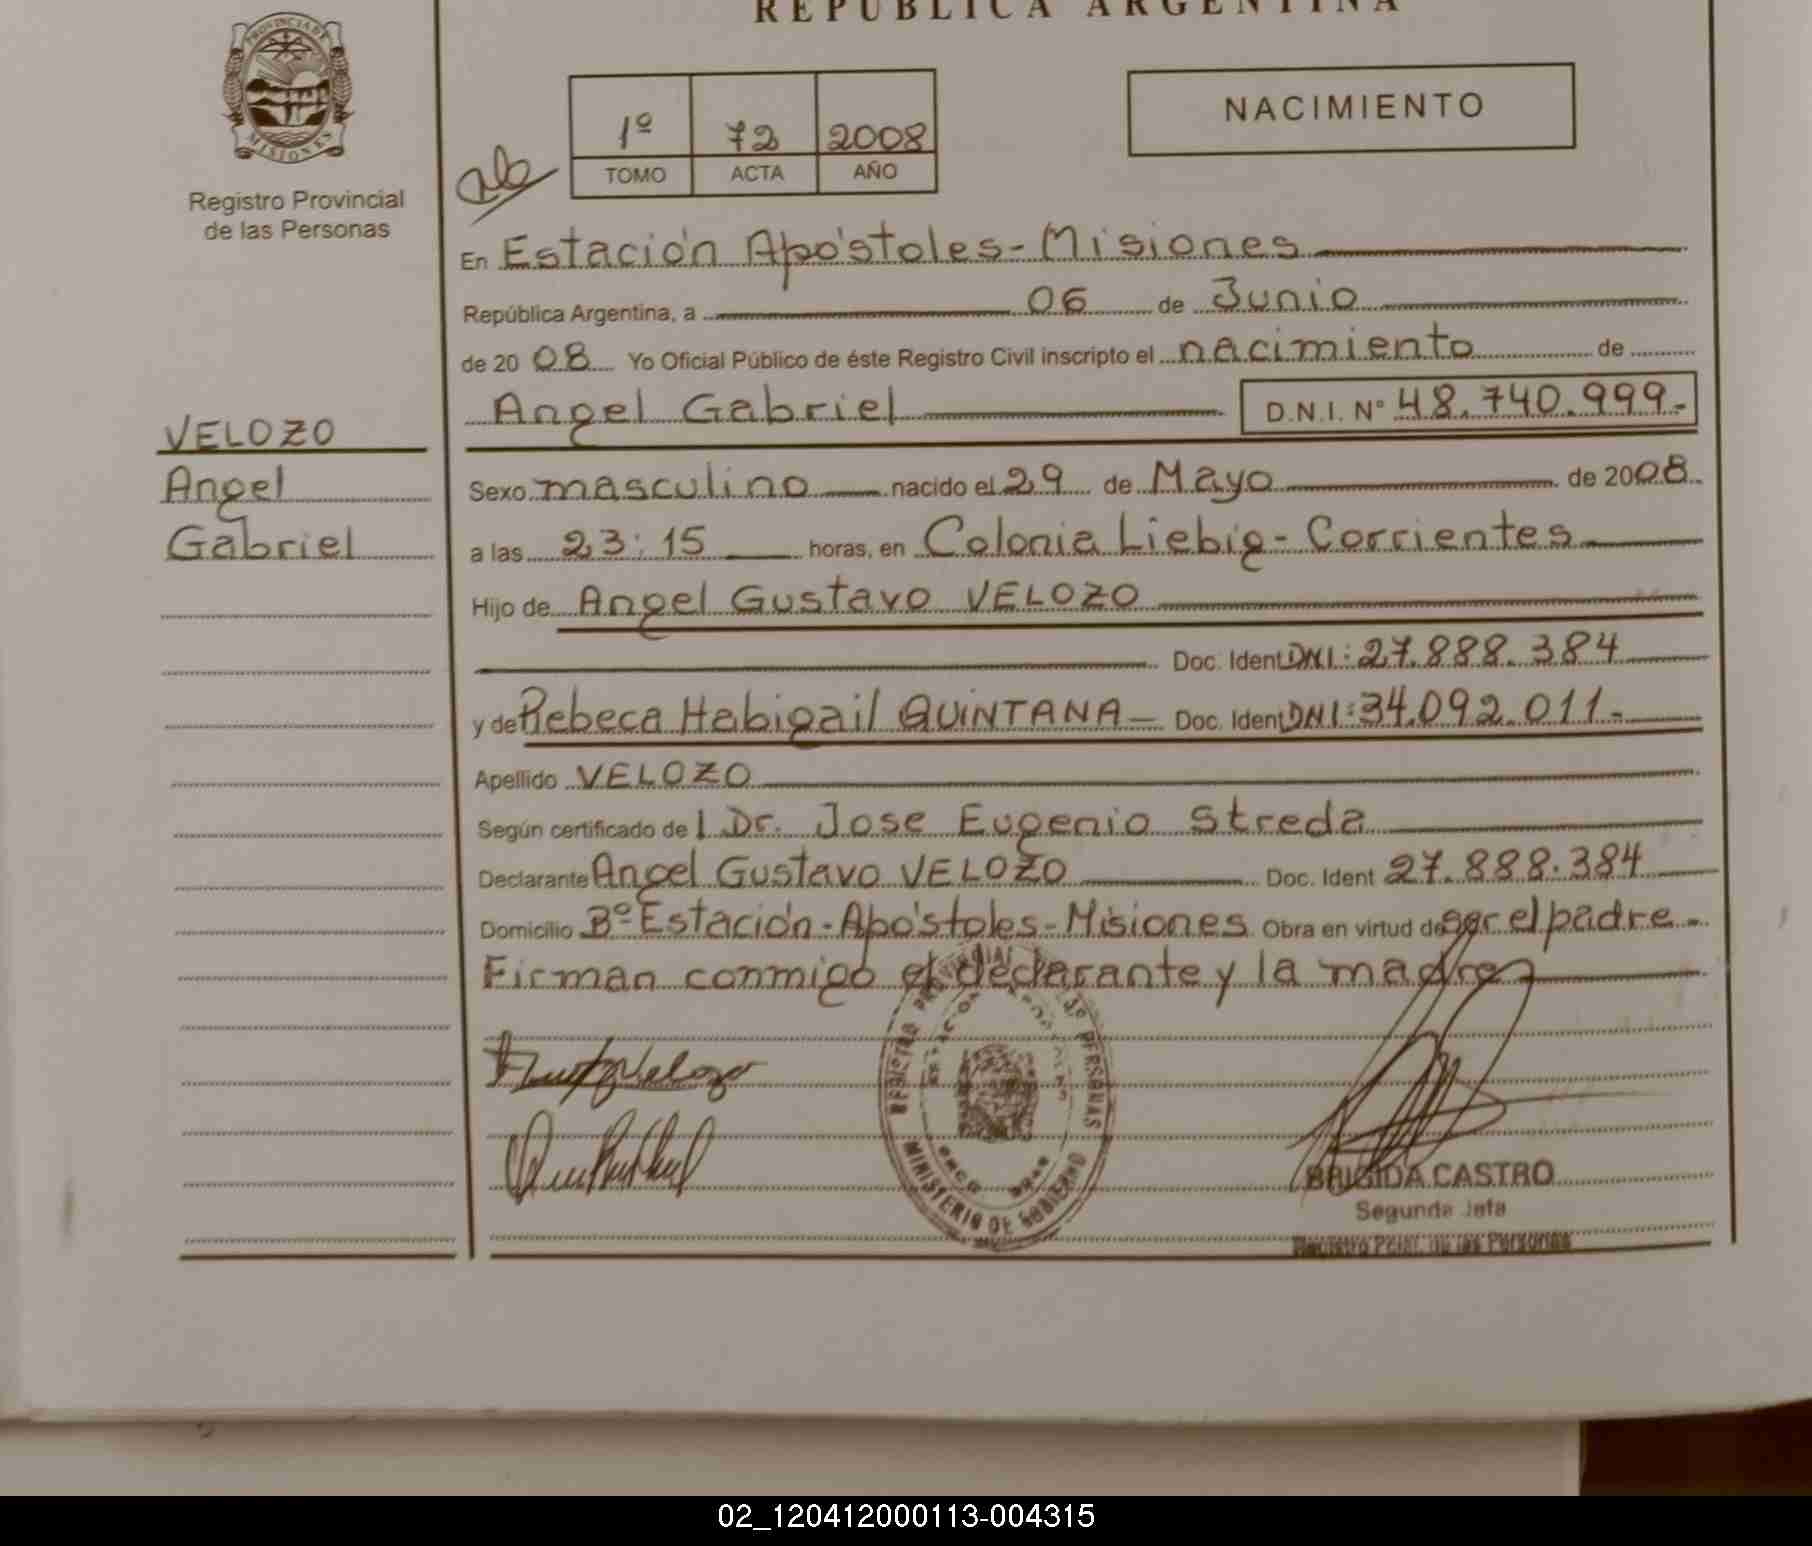 REPUBLICA ARGENTINA
PROVINCIA DE
MISIONES
Registro Provincial
de las Personas
1º 72 2008
TOMO ACTA AÑO
NACIMIENTO
En Estación Apóstoles-Misiones
República Argentina, a 06 de Junio
de 2008 Yo Oficial Público de éste Registro Civil inscripto el nacimiento de
Angel Gabriel D.N.I. Nº 48.740.999-
VELOZO
Angel
Gabriel
Sexo masculino nacido el 29 de Mayo de 2008
a las 23:15 horas, en Colonia Liebig-Corrientes
Hijo de Angel Gustavo VELOZO
Doc. Ident DNI: 27.888.384
y de Rebeca Habigail QUINTANA Doc. Ident DNI: 34.092.011-
Apellido VELOZO
Según certificado del Dr. Jose Eugenio Streda
Declarante Angel Gustavo VELOZO Doc. Ident 27.888.384
Domicilio Bº Estación-Apóstoles-Misiones Obra en virtud de ser el padre-
Firman conmigo el declarante y la madre
REGISTRO PROVINCIAL PERSONAS
MINISTERIO DE GOBIERNO
BRIGIDA CASTRO
Segunda Jefa
Registro Pcial. de las Personas
02_120412000113-004315